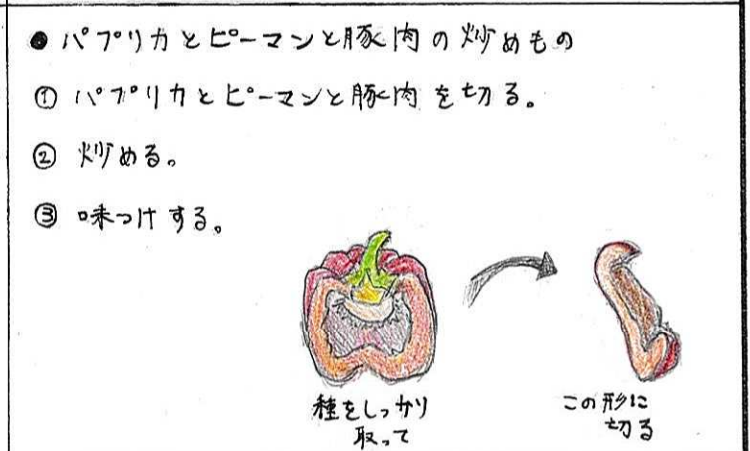 ● パプリカとピーマンと豚肉の炒めもの
① パプリカとピーマンと豚肉を切る。
② 炒める。
③ 味つけする。
種をしっかり
取って
この形に
切る